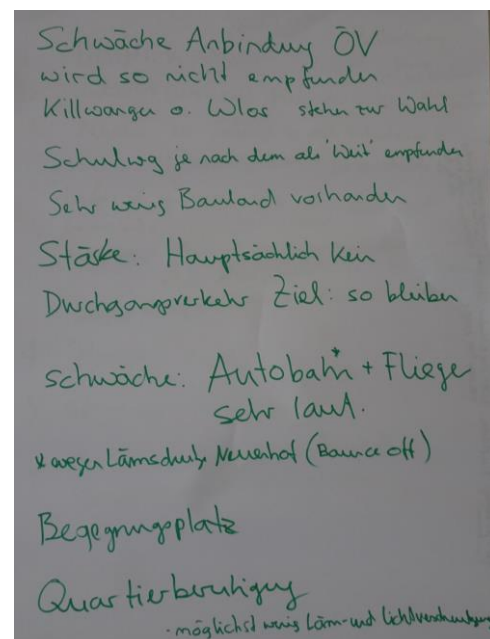 Schwäche Anbindung ÖV
wird so nicht empfunden
Killwangen o. Wlos stehen zur Wahl
Schulweg je nach dem als 'Weit' empfunden
Sehr wenig Bauland vorhanden
Stärke: Hauptsächlich Kein
Durchgangsverkehr Ziel: so bleiben
schwäche: Autobahn* + Flieger
sehr laut.
* wegen Lärmschutz Neuenhof (Bounce off)
Begegnungsplatz
Quartierberuhigung
- möglichst wenig Lärm- und Lichtverschmutzung